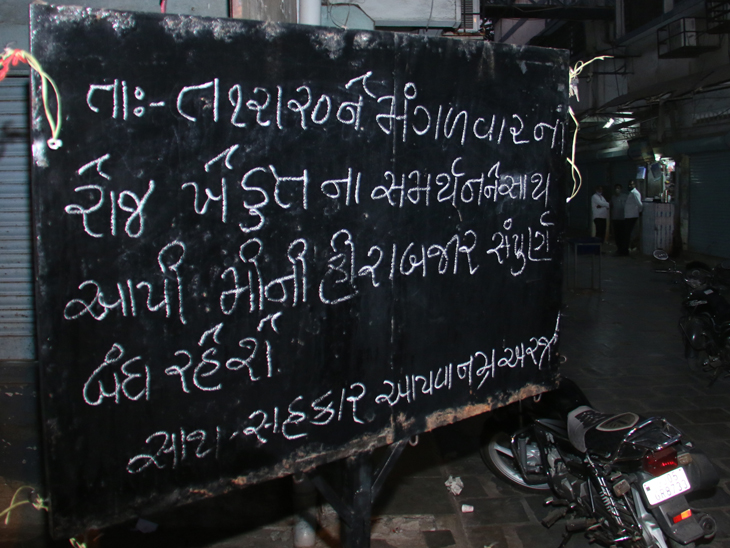 તાઃ- ૮ ૧૨ ૨૦૨૦ને મંગળવારના
રોજ ખેડુત ના સમર્થનને સાથ
આપી મીની હીરાબજાર સંપુર્ણ
બંધ રહેશે.
સાથ - સહકાર આપવા નમ્ર અરજ